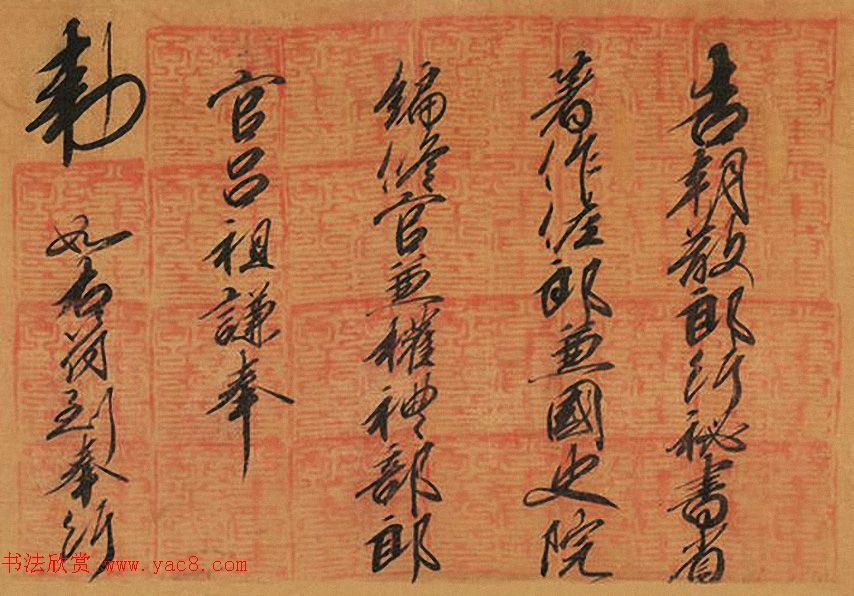 告朝散郎行秘書省
著作佐郎兼國史院
編修官兼權禮部郎
官呂祖謙奉
勑
如右符到奉行
书法欣赏 www.yac8.com